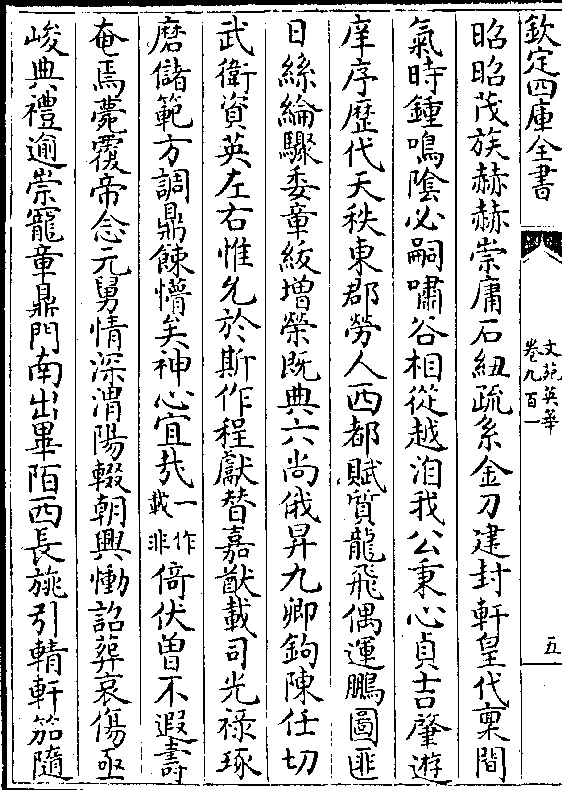 欽定四庫全書
文苑英華
卷九百一
五
昭昭茂族赫赫崇庸石紐疏系金刀建封軒皇代稟間
氣時鍾鳴陰必嗣嘯谷相從越洎我公秉心貞吉肇遊
庠序歴代天秩東郡勞人西都賦質龍飛偶運鵬圖匪
日絲綸驟委章綬増榮既典六尚俄昇九卿鉤陳任切
武衛資英左右惟允於斯作程獻替嘉猷載司光禄琢
磨儲範方調鼎餗懵矣神心宜㢤一作載非倚伏曽不遐壽
奄焉薨覆帝念元舅情深渭陽輟朝興慟詔葬哀傷亟
峻典禮逾崇寵章鼎門南出畢陌西長旐引輤軒笳隨